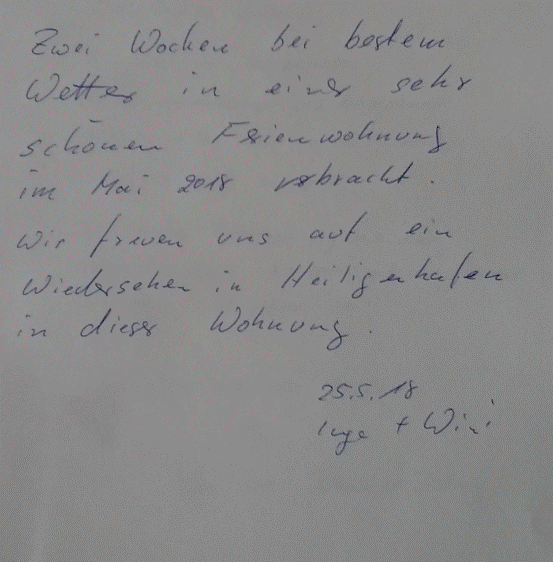 Zwei Wochen bei bestem
Wetter in einer sehr
schönen Ferienwohnung
im Mai 2018 verbracht.
Wir freuen uns auf ein
Wiedersehen in Heiligenhafen
in dieser Wohnung.
25.5.18
Inge + Wini